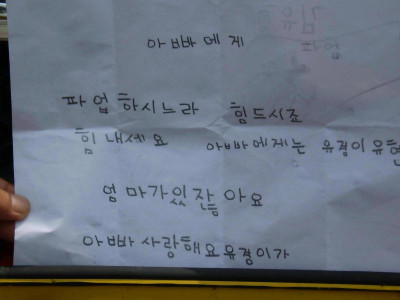 아빠에게
파업하시느라 힘드시죠
힘내세요 아빠에게는 유경이 유현
엄마가있잖아요
아빠사랑해요유경이가